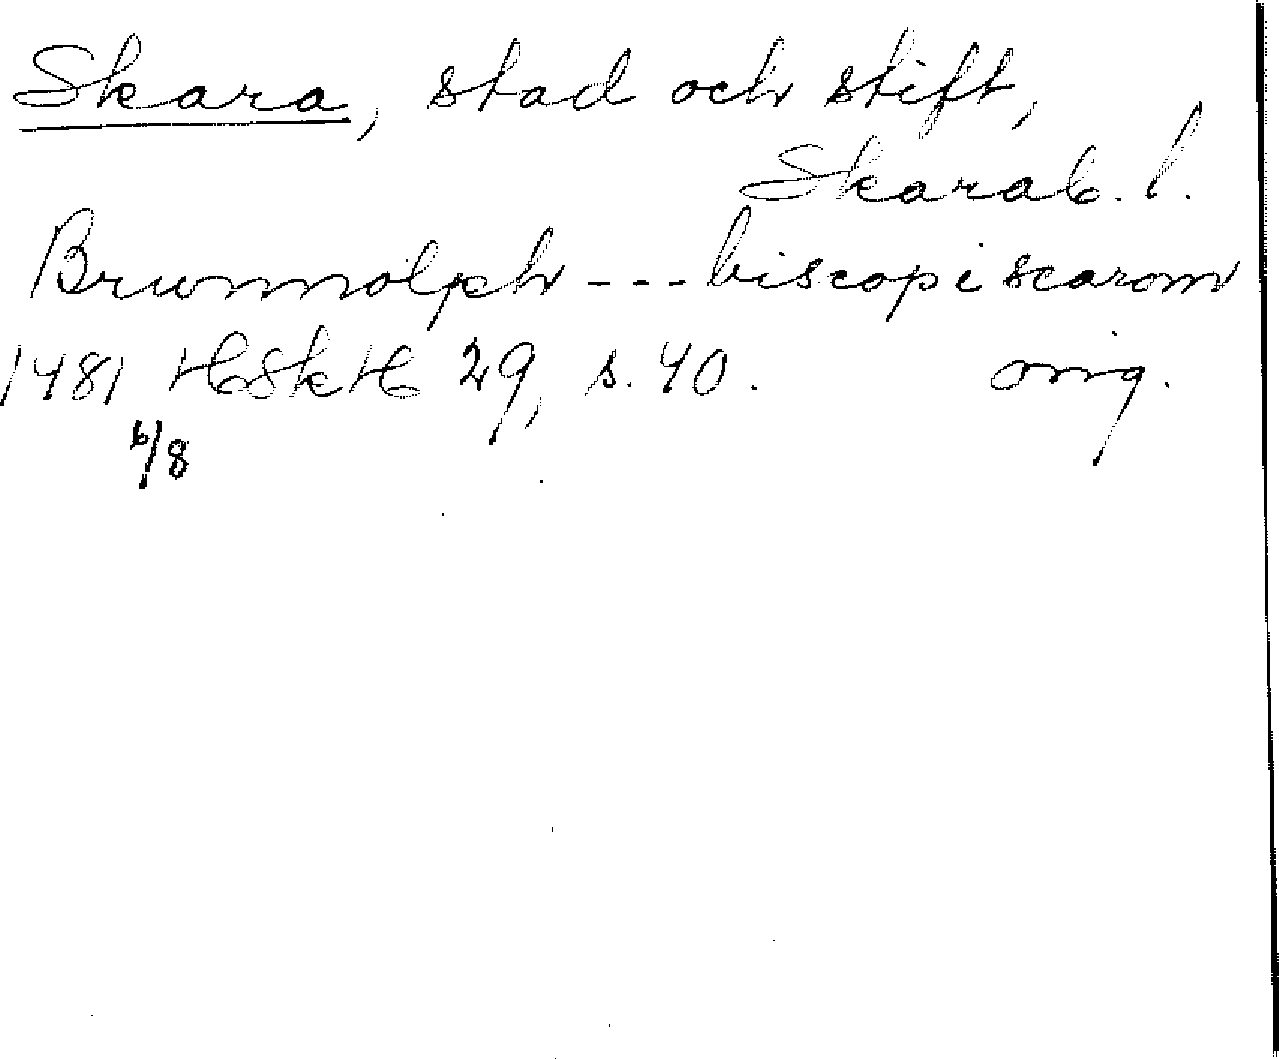 Skara, stad och stift,
Skarab. l.
Brunnolph --- biscop i scarom
1481 HSkH 29, s. 40. orig.
6/8